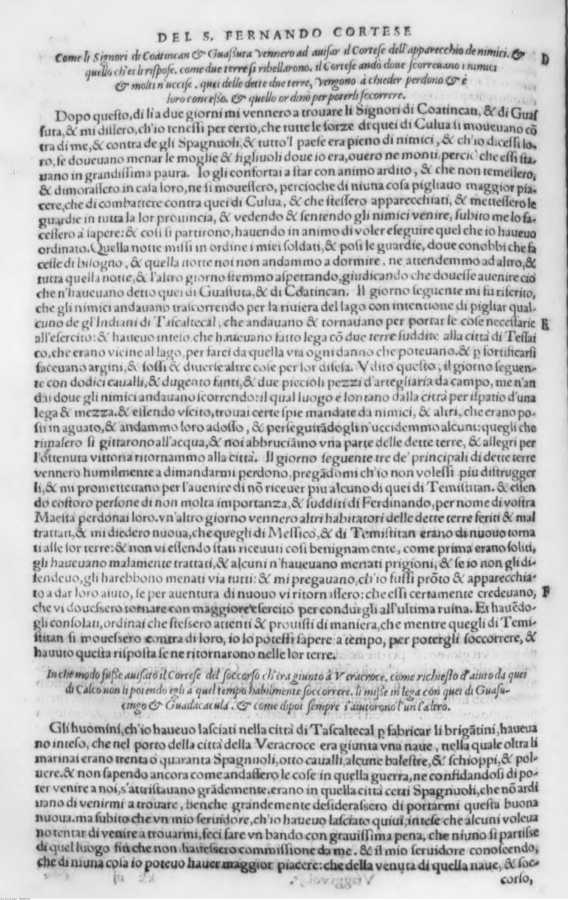 DEL S. FERNANDO CORTESE
Come li Signori di Coatincan & Guaſſuta vennero ad auiſar il Corteſe dell'apparecchio de nimici, &
quello ch'ei li riſpoſe. come due terre ſi ribellarono. il Corteſe andò doue ſcorreuano i nimici
& molti n'ucciſe. quei delle dette due terre, vengono à chieder perdono & è
loro conceſſo, & quello ordinò per poterli ſoccorrere.
D
Dopo queſto, di lì a due giorni mi vennero a trouare li Signori di Coatincan, & di Guaſ
ſuta, & mi diſſero, ch'io teneſſi per certo, che tutte le forze di quei di Culua ſi moueuano cō
tra di me, & contra de gli Spagnuoli, & tutto'l paeſe era pieno di nimici, & ch'io diceſſi lo-
ro, ſe doueuano menar le moglie & figliuoli doue io era, ouero ne monti, percio che eſſi ſta-
uano in grandiſſima paura. Io gli confortai a ſtar con animo ardito, & che non temeſſero,
& dimoraſſero in caſa loro, ne ſi moueſſero, percioche di niuna coſa pigliauo maggior pia-
cere, che di combattere contra quei di Culua, & che ſteſſero apparecchiati, & metteſſero le
guardie in tutta la lor prouincia, & vedendo & ſentendo gli nimici venire, ſubito me lo fa-
ceſſero a ſapere: & coſi ſi partirono, hauendo in animo di voler eſeguire quel che io haueuo
ordinato. Quella notte miſſi in ordine i miei ſoldati, & poſi le guardie, doue conobbi che fa
ceſſe di biſogno, & quella notte noi non andammo a dormire, ne attendemmo ad altro, &
tutta quella notte, & l'altro giorno ſtemmo aſpettando, giudicando che doueſſe auenire ciò
che n'haueuano detto quei di Guaſſuta, & di Coatincan. Il giorno ſeguente mi fu riferito,
che gli nimici andauano traſcorrendo per la riuiera del lago con intentione di pigliar qual-
cuno de gl'Indiani di Taſcaltecal, che andauano & tornauano per portar le coſe neceſſarie
E
all'eſercito: & haueuo inteſo che haueuano fatto lega cō due terre ſuddite alla città di Teſſai
co, che erano vicine al lago, per farci da quella via ogni danno che poteuano. & p fortificarſi
faceuano argini, & foſſi & diuerſe altre coſe per lor difeſa. Vdito queſto, il giorno ſeguen-
te con dodici caualli, & dugento fanti, & due piccioli pezzi d'artegliaria da campo, me n'an
dai doue gli nimici andauano ſcorrendo: il qual luogo è lontano dalla città per iſpatio d'una
lega & mezza. & eſſendo vſcito, trouai certe ſpie mandate da nimici, & altri, che erano po-
ſti in aguato, & andammo loro adoſſo, & perſeguitādogli n'uccidemmo alcuni: quegli che
riſpaſero ſi gittarono all'acqua, & noi abbruciāmo vna parte delle dette terre, & allegri per
l'ottenuta vittoria ritornammo alla città. Il giorno ſeguente tre de' principali di dette terre
vennero humilmente a dimandarmi perdono, pregādomi ch'io non voleſſi più diſtrugger
li, & mi prometteuano per l'auenire di nō riceuer più alcuno di quei di Temiſtitan. & eſſen
do coſtoro perſone di non molta importanza, & ſudditi di Ferdinando, per nome di voſtra
Maeſtà perdonai loro. vn'altro giorno vennero altri habitatori delle dette terre feriti & mal
trattati, & mi diedero nuoua, che quegli di Meſſico, & di Temiſtitan erano di nuouo torna
ti alle lor terre: & non vi eſſendo ſtati riceuuti coſi benignamente, come prima erano ſoliti,
gli haueuano malamente trattati, & alcuni n'haueuano menati prigioni, & ſe io non gli di-
fendeuo, gli harebbono menati via tutti: & mi pregauano, ch'io fuſſi prōto & apparecchia-
to a dar loro aiuto, ſe per auentura di nuouo vi ritornaſſero: che eſſi certamente credeuano,
F
che vi doueſſero tornare con maggiore eſercito per condurgli all'ultima ruina. Et hauēdo-
gli conſolati, ordinai che ſteſſero attenti & prouiſti di maniera, che mentre quegli di Temi-
ſtitan ſi moueſſero contra di loro, io lo poteſſi ſapere a tempo, per potergli ſoccorrere, &
hauuto queſta riſpoſta ſe ne ritornarono nelle lor terre.
In che modo fuſſe auiſato il Corteſe del ſoccorſo ch'era giunto à Veracroce, come richieſto d'aiuto da quei
di Calco non li potendo egli a quel tempo habilmente ſoccorrere, li miſſe in lega con quei di Guaſu-
cingo & Guadacacula. & come dipoi ſempre s'aiutorono l'un l'altro.
Gli huomini, ch'io haueuo laſciati nella città di Taſcaltecal p fabricar li brigātini, haueua
no inteſo, che nel porto della città della Veracroce era giunta vna naue, nella quale oltra li
marinai erano trenta ò quaranta Spagnuoli, otto caualli, alcune baleſtre, & ſchioppi, & pol-
uere. & non ſapendo ancora come andaſſero le coſe in quella guerra, ne confidandoſi di po-
ter venire a noi, s'attriſtauano grādemente. erano in quella città certi Spagnuoli, che nō ardi
uano di venirmi a trouare, benche grandemente deſideraſſero di portarmi queſta buona
nuoua. ma ſubito che vn mio ſeruidore, ch'io haueuo laſciato quiui, inteſe che alcuni voleua
no tentar di venire a trouarmi, feci fare vn bando con grauiſſima pena, che niuno ſi partiſſe
di quel luogo fin che non haueſſero commiſſione da me. & il mio ſeruidore conoſcendo,
che di niuna coſa io poteuo hauer maggior piacere: che della venuta di quella naue, & ſoc-
corſo,